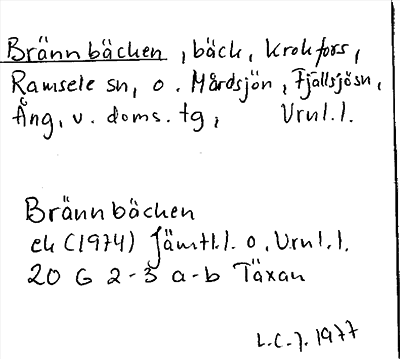 Brännbäcken, bäck, Krokfors,
Ramsele sn, o. Mårdsjön, Fjällsjösn,
Ång. v. doms. tg, Vrnl.l.
Brännbäcken
ek (1974) Jämtl.l. o. Vrnl.l.
20 G 2-3 a-b Täxan
L.C.J. 1977